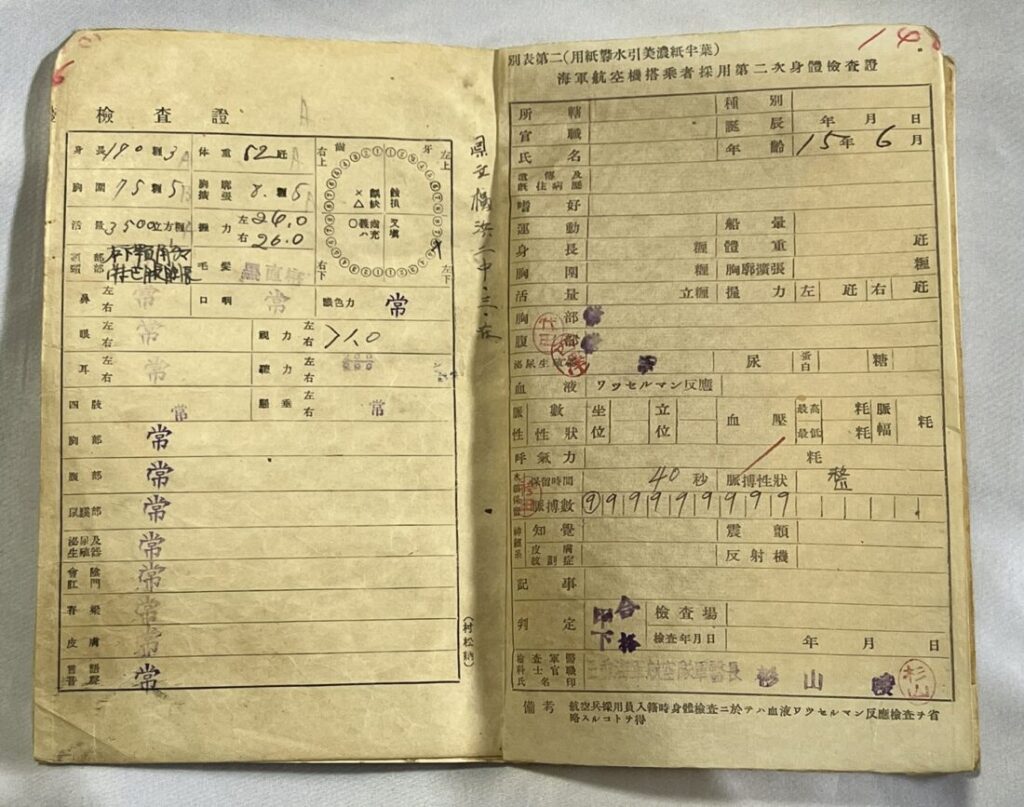 檢査證
身長 170 糎 3 体重 52 瓩
胸圍 75 糎 5 胸廓擴張 8. 糎 5
活量 3500 立方糎 握力 左 26.0 右 26.0
齒牙
右上 左上
右下 左下
毛髮
鼻 左右 常 口咽 常 識色力 常
眼 左右 常 視力 左右 >1.0
耳 左右 常 聽力 左右
四肢 常 懸垂 左右 常
胸部 常
腹部 常
鼠蹊部 常
泌尿及生殖器 常
會陰肛門 常
脊梁 常
皮膚 常
言語音聲 常
(村松納)
別表第二(用紙礬水引美濃紙半葉)
海軍航空機搭乘者採用第二次身體檢査證
所轄 種別
官職 誕辰 年 月 日
氏名 年齡 15年 6月
遺傳及既住病歷
嗜好
運動 船暈
身長 糎 體重 瓩
胸圍 糎 胸廓擴張 糎
活量 立糎 握力 左 瓩 右 瓩
胸部
腹部
泌尿生殖器 尿 蛋白 糖
血液 ワツセルマン反應
脈數 坐位 立位 血壓 最高 粍 脈幅 粍
性性狀 最低 粍
呼氣力 粍
保留時間 40秒 脈搏性狀 整
脈搏數 9 9 9 9 9 9 9 9 9
神經系 知覺 震顫
皮膚紋劃症 反射機
記事
判定 甲下 合格 檢査場
檢査年月日 年 月 日
檢査軍醫科士官官職氏名印 軍醫長 杉山 杉山
備考 航空兵採用員入籍時身體檢査ニ於テハ血液ワツセルマン反應檢査ヲ省
略スルコトヲ得